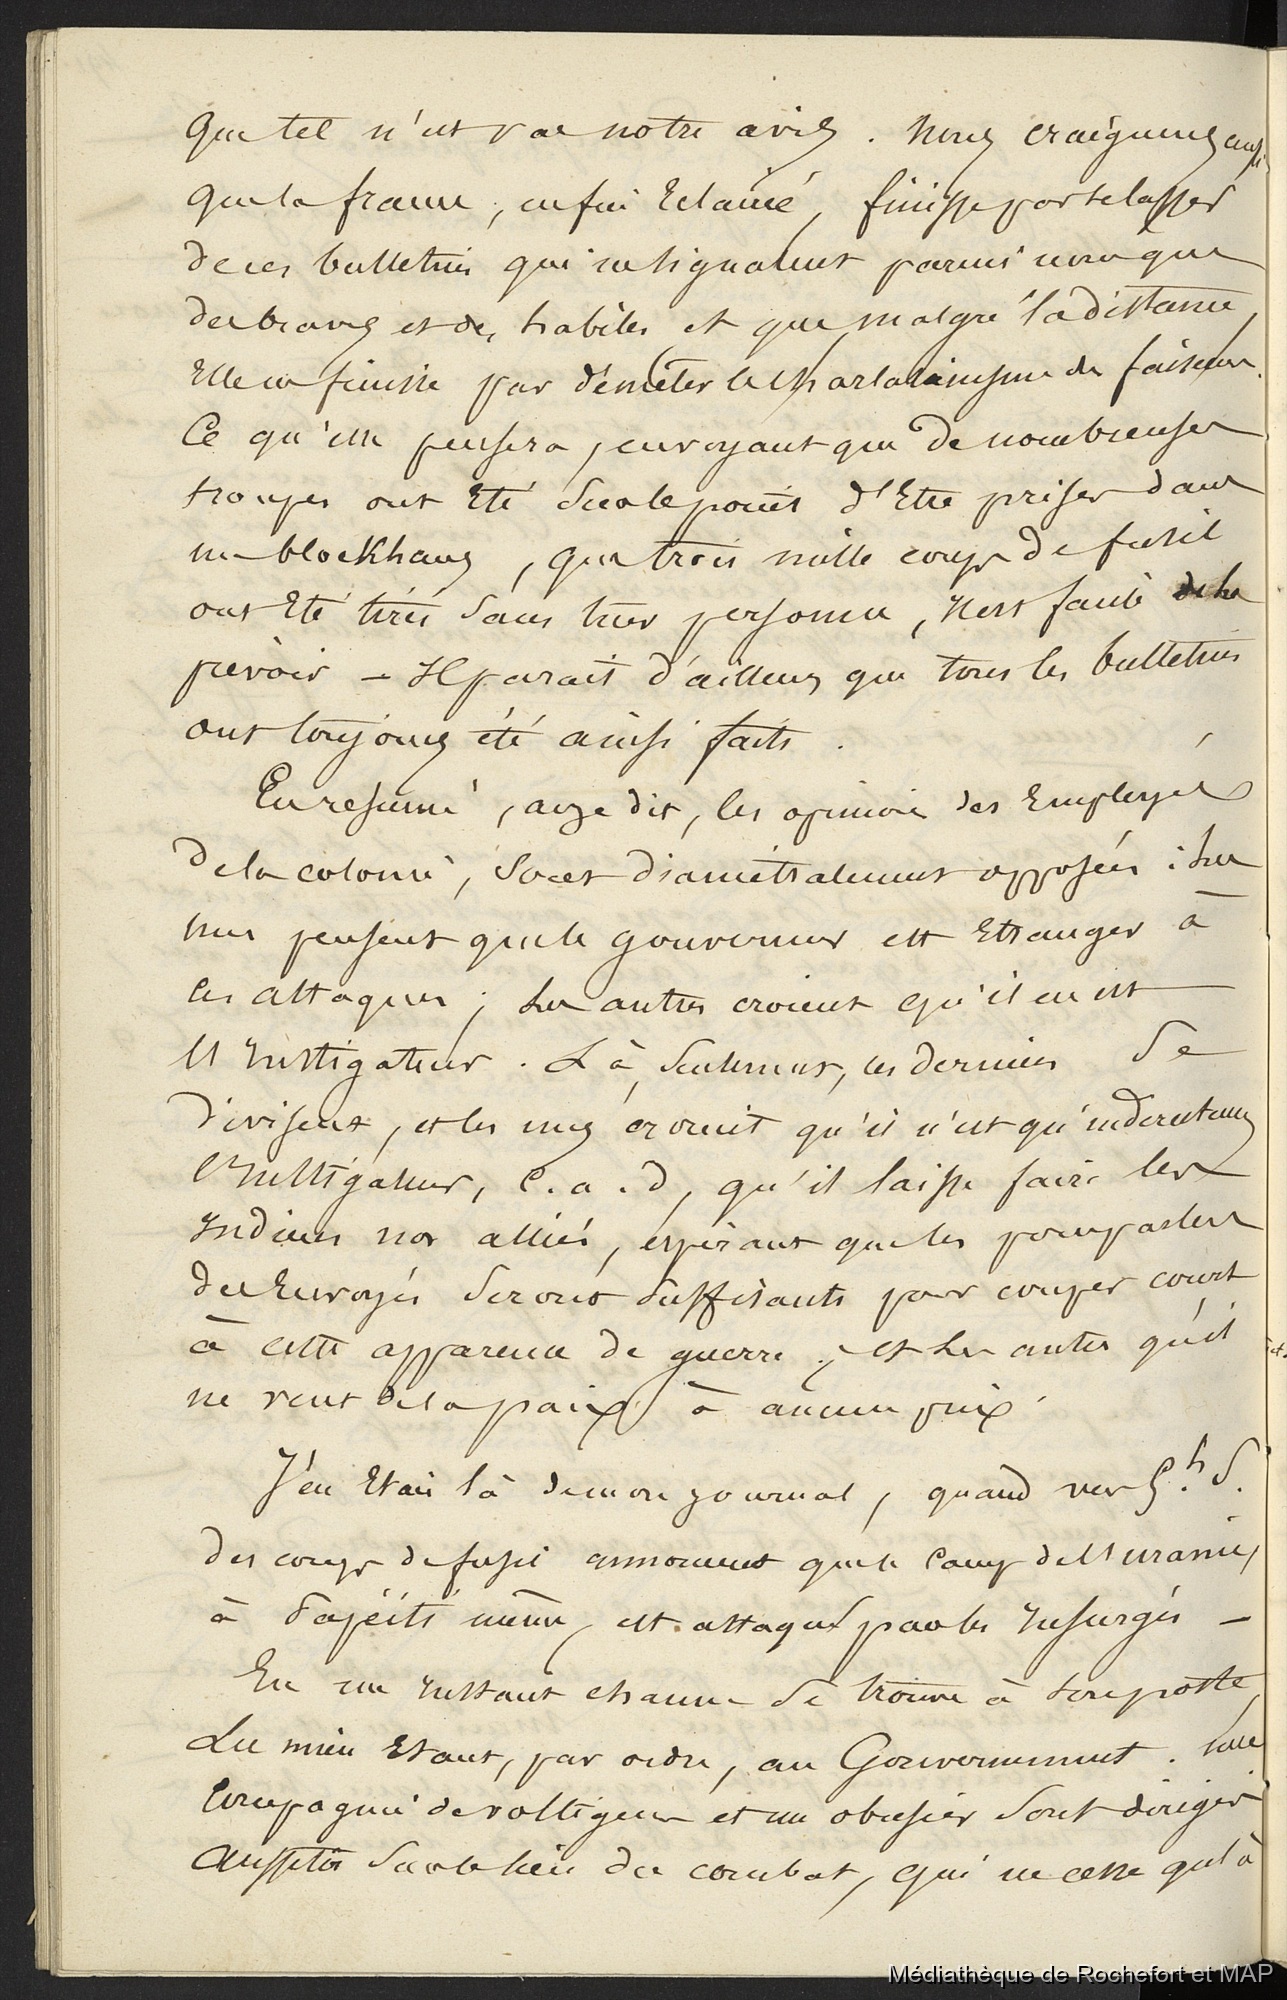 que tel n'est pas notre avis. Nous craignons aussi
que la france, enfin Eclairée, finisse par se lasser
de ces bulletins qui ne signalent parmi nous que
des braves et des habiles et que, malgré la distance,
Elle ne finisse par démêler le charlatanisme du faiseur.
Ce qu'elle pensera, en voyant que de nombreuses
troupes ont Eté sur le point d'Etre prises dans
un blockhaus, que trois mille coups de fusil
ont Eté tirés sans tuer personne, Il est facile de le
prévoir – Il parait d'ailleurs que tous les bulletins
ont toujours été ainsi faits.
En resumé, ai-je dit, les opinions des Employés
de la colonie, sont diamétralement opposées : Les
uns pensent que le gouverneur est Etranger à
ces attaques ; Les autres croient qu'il en est
l'Instigateur. Là, seulement, ces derniers se
divisent, et les uns croient qu'il n'est qu'indirectement
l'Instigateur, C.a.d, qu'il laisse faire les
Indiens nos alliés, espérant que les pourparlers
des Envoyés seront suffisants pour couper court
à cette apparence de guerre ; et Les autres qu'il
ne veut de la paix à aucun prix.
J'en Etais là de mon journal, quand vers 5.h S.
des coups de fusil annoncent que le Camp de l'uranie,
à Papéiti même, est attaqué par les Insurgés –
En un Instant chacun se trouve à son poste,
Le mien Etant, par ordre, au Gouvernement. Une
Compagnie de voltigeurs et un obusier sont dirigés
aussitôt sur le lieu du combat, qui ne cesse qu'à
Médiathèque de Rochefort et MAP